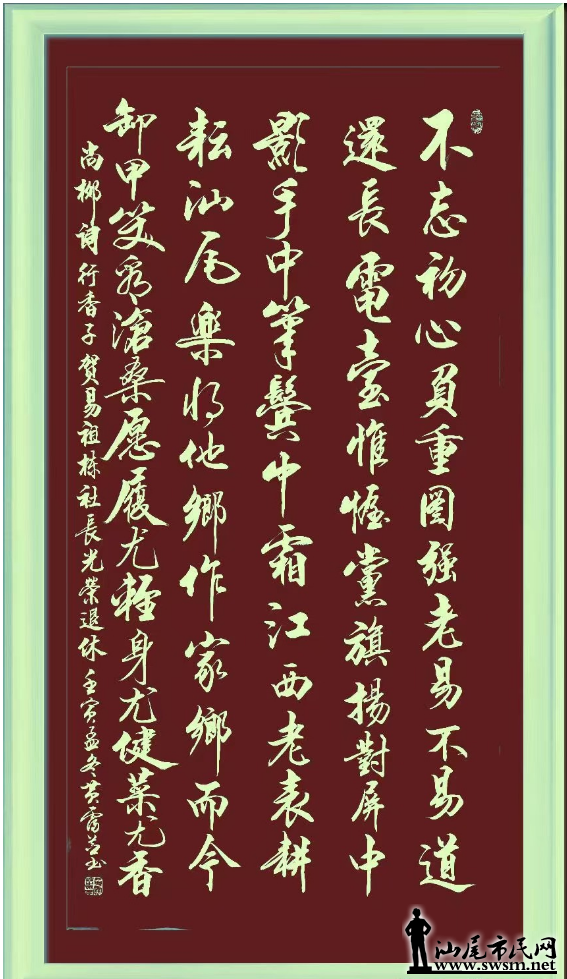 不忘初心負重圖强老易不易道
還長電臺帷幄黨旗揚對屏中
影手中筆鬓中霜江西老表耕
耘汕尾樂將他鄉作家鄉而今
卸甲笑看滄桑愿履尤輕身尤健菜尤香
尚柳詞行香子賀易祖栋社長光榮退休壬寅孟冬黄
汕尾市民网
www.swsm.net